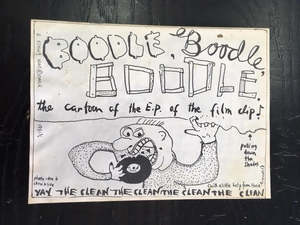 BOODLE, Boodle,
BOODLE,
the cartoon of the E.P. of the film clip!
pulling
down
the
shades
YAY THE CLEAN THE CLEAN THE CLEAN THE CLEAN THE CLEAN